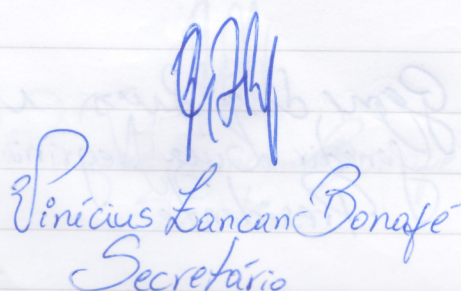 Vinícius Zancan Bonafé
Secretário